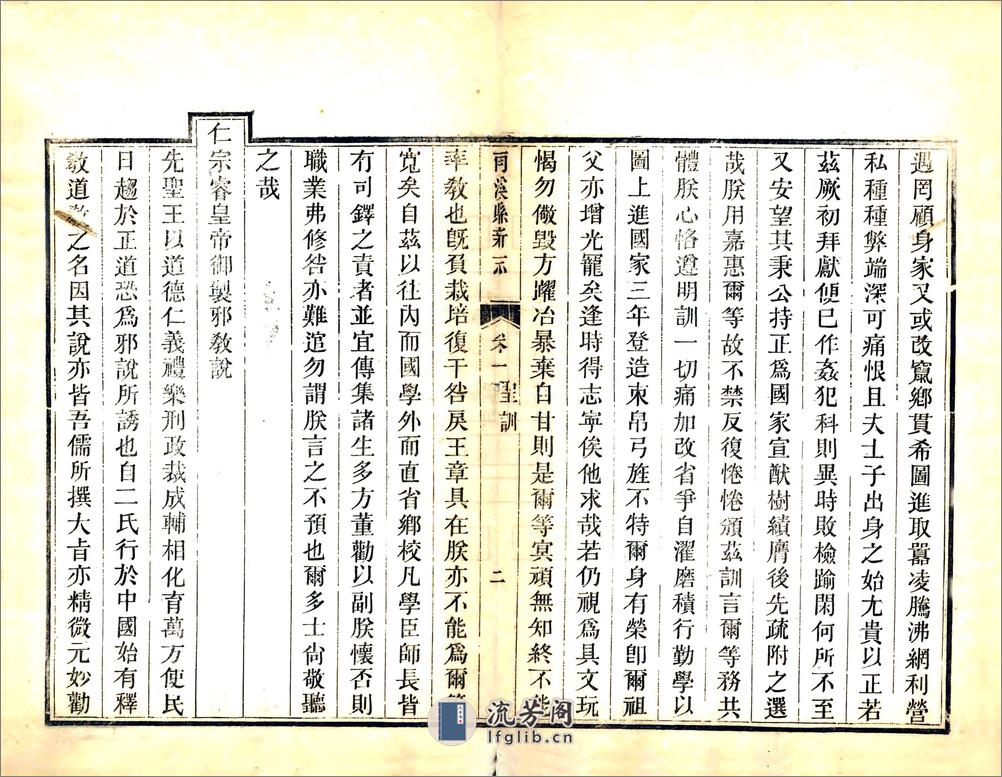 遇罔顧身家又或改竄鄉貫希圖進取囂凌騰沸網利營
私種種弊端深可痛恨且夫士子出身之始尤貴以正若
茲厥初拜獻便已作姦犯科則異時敗檢踰閑何所不至
又安望其秉公持正為國家宣猷樹績膺後先疏附之選
哉朕用嘉惠爾等故不禁反復惓惓頒茲訓言爾等務共
體朕心恪遵明訓一切痛加改省爭自濯磨積行勤學以
圖上進國家三年登造束帛弓旌不特爾身有榮卽爾祖
父亦增光寵矣逢時得志寧俟他求哉若仍視為具文玩
愒勿儆毀方躍冶暴棄自甘則是爾等冥頑無知終不能
率教也旣負栽培復干咎戾王章具在朕亦不能為爾等
寬矣自茲以往內而國學外而直省鄉校凡學臣師長皆
有司鐸之責者並宜傳集諸生多方董勸以副朕懷否則
職業弗修咎亦難逭勿謂朕言之不預也爾多士尙敬聽
之哉
仁宗睿皇帝御製邪教說
先聖王以道德仁義禮樂刑政裁成輔相化育萬方使民
日趨於正道恐為邪說所誘也自二氏行於中國始有釋
教道教之名因其說亦皆吾儒所撰大旨亦精微元妙勸
縣
卷一
聖訓
二
流芳阁
lfglib.cn